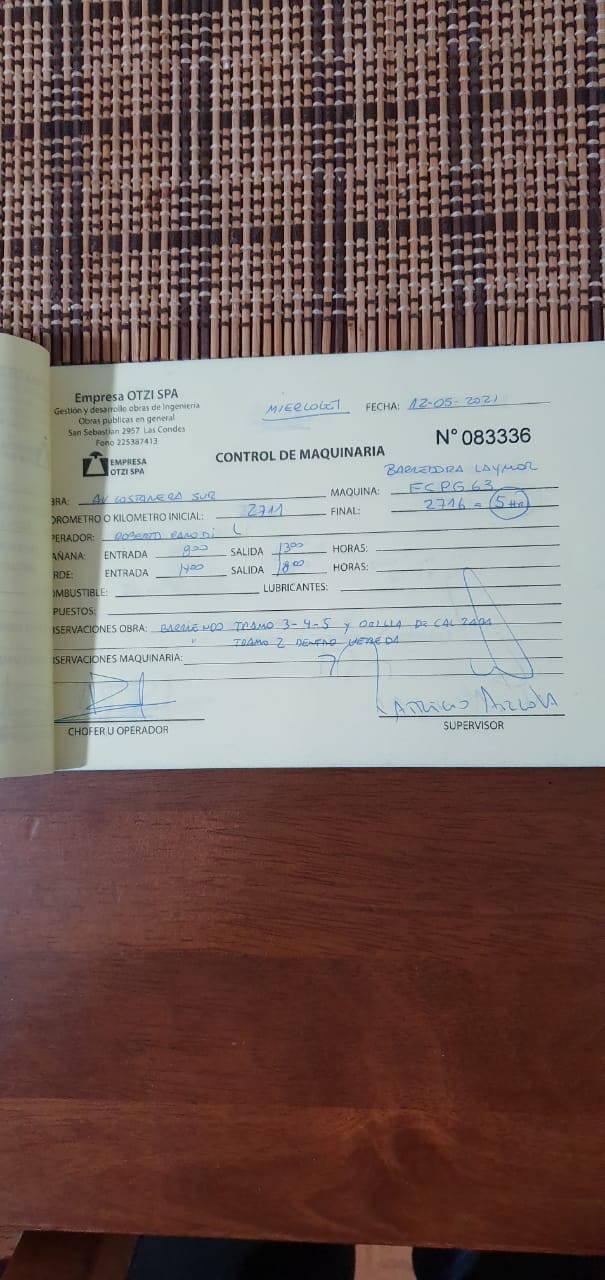 Empresa OTZI SPA
Gestión y desarrollo obras de Ingeniería
Obras publicas en general
San Sebastian 2957 Las Condes
Fono 225387413
EMPRESA
OTZI SPA
MIERCOLES FECHA: 12-05-2021
N° 083336
CONTROL DE MAQUINARIA
BARREDORA LAYMOR
BRA: AV COSTANERA SUR MAQUINA: FCPG63
OROMETRO O KILOMETRO INICIAL: 2711 FINAL: 2716 = 5 Hrs
PERADOR: ROBERTO
AÑANA: ENTRADA 8:00 SALIDA 13:00 HORAS:
RDE: ENTRADA 14:00 SALIDA 18:00 HORAS:
OMBUSTIBLE: LUBRICANTES:
PUESTOS:
SERVACIONES OBRA: BARRIENDO TRAMO 3-4-5 y ORILLA DE CALZADA
" TRAMO 2 DENTRO VEREDA
SERVACIONES MAQUINARIA:
CHOFER U OPERADOR
SUPERVISOR